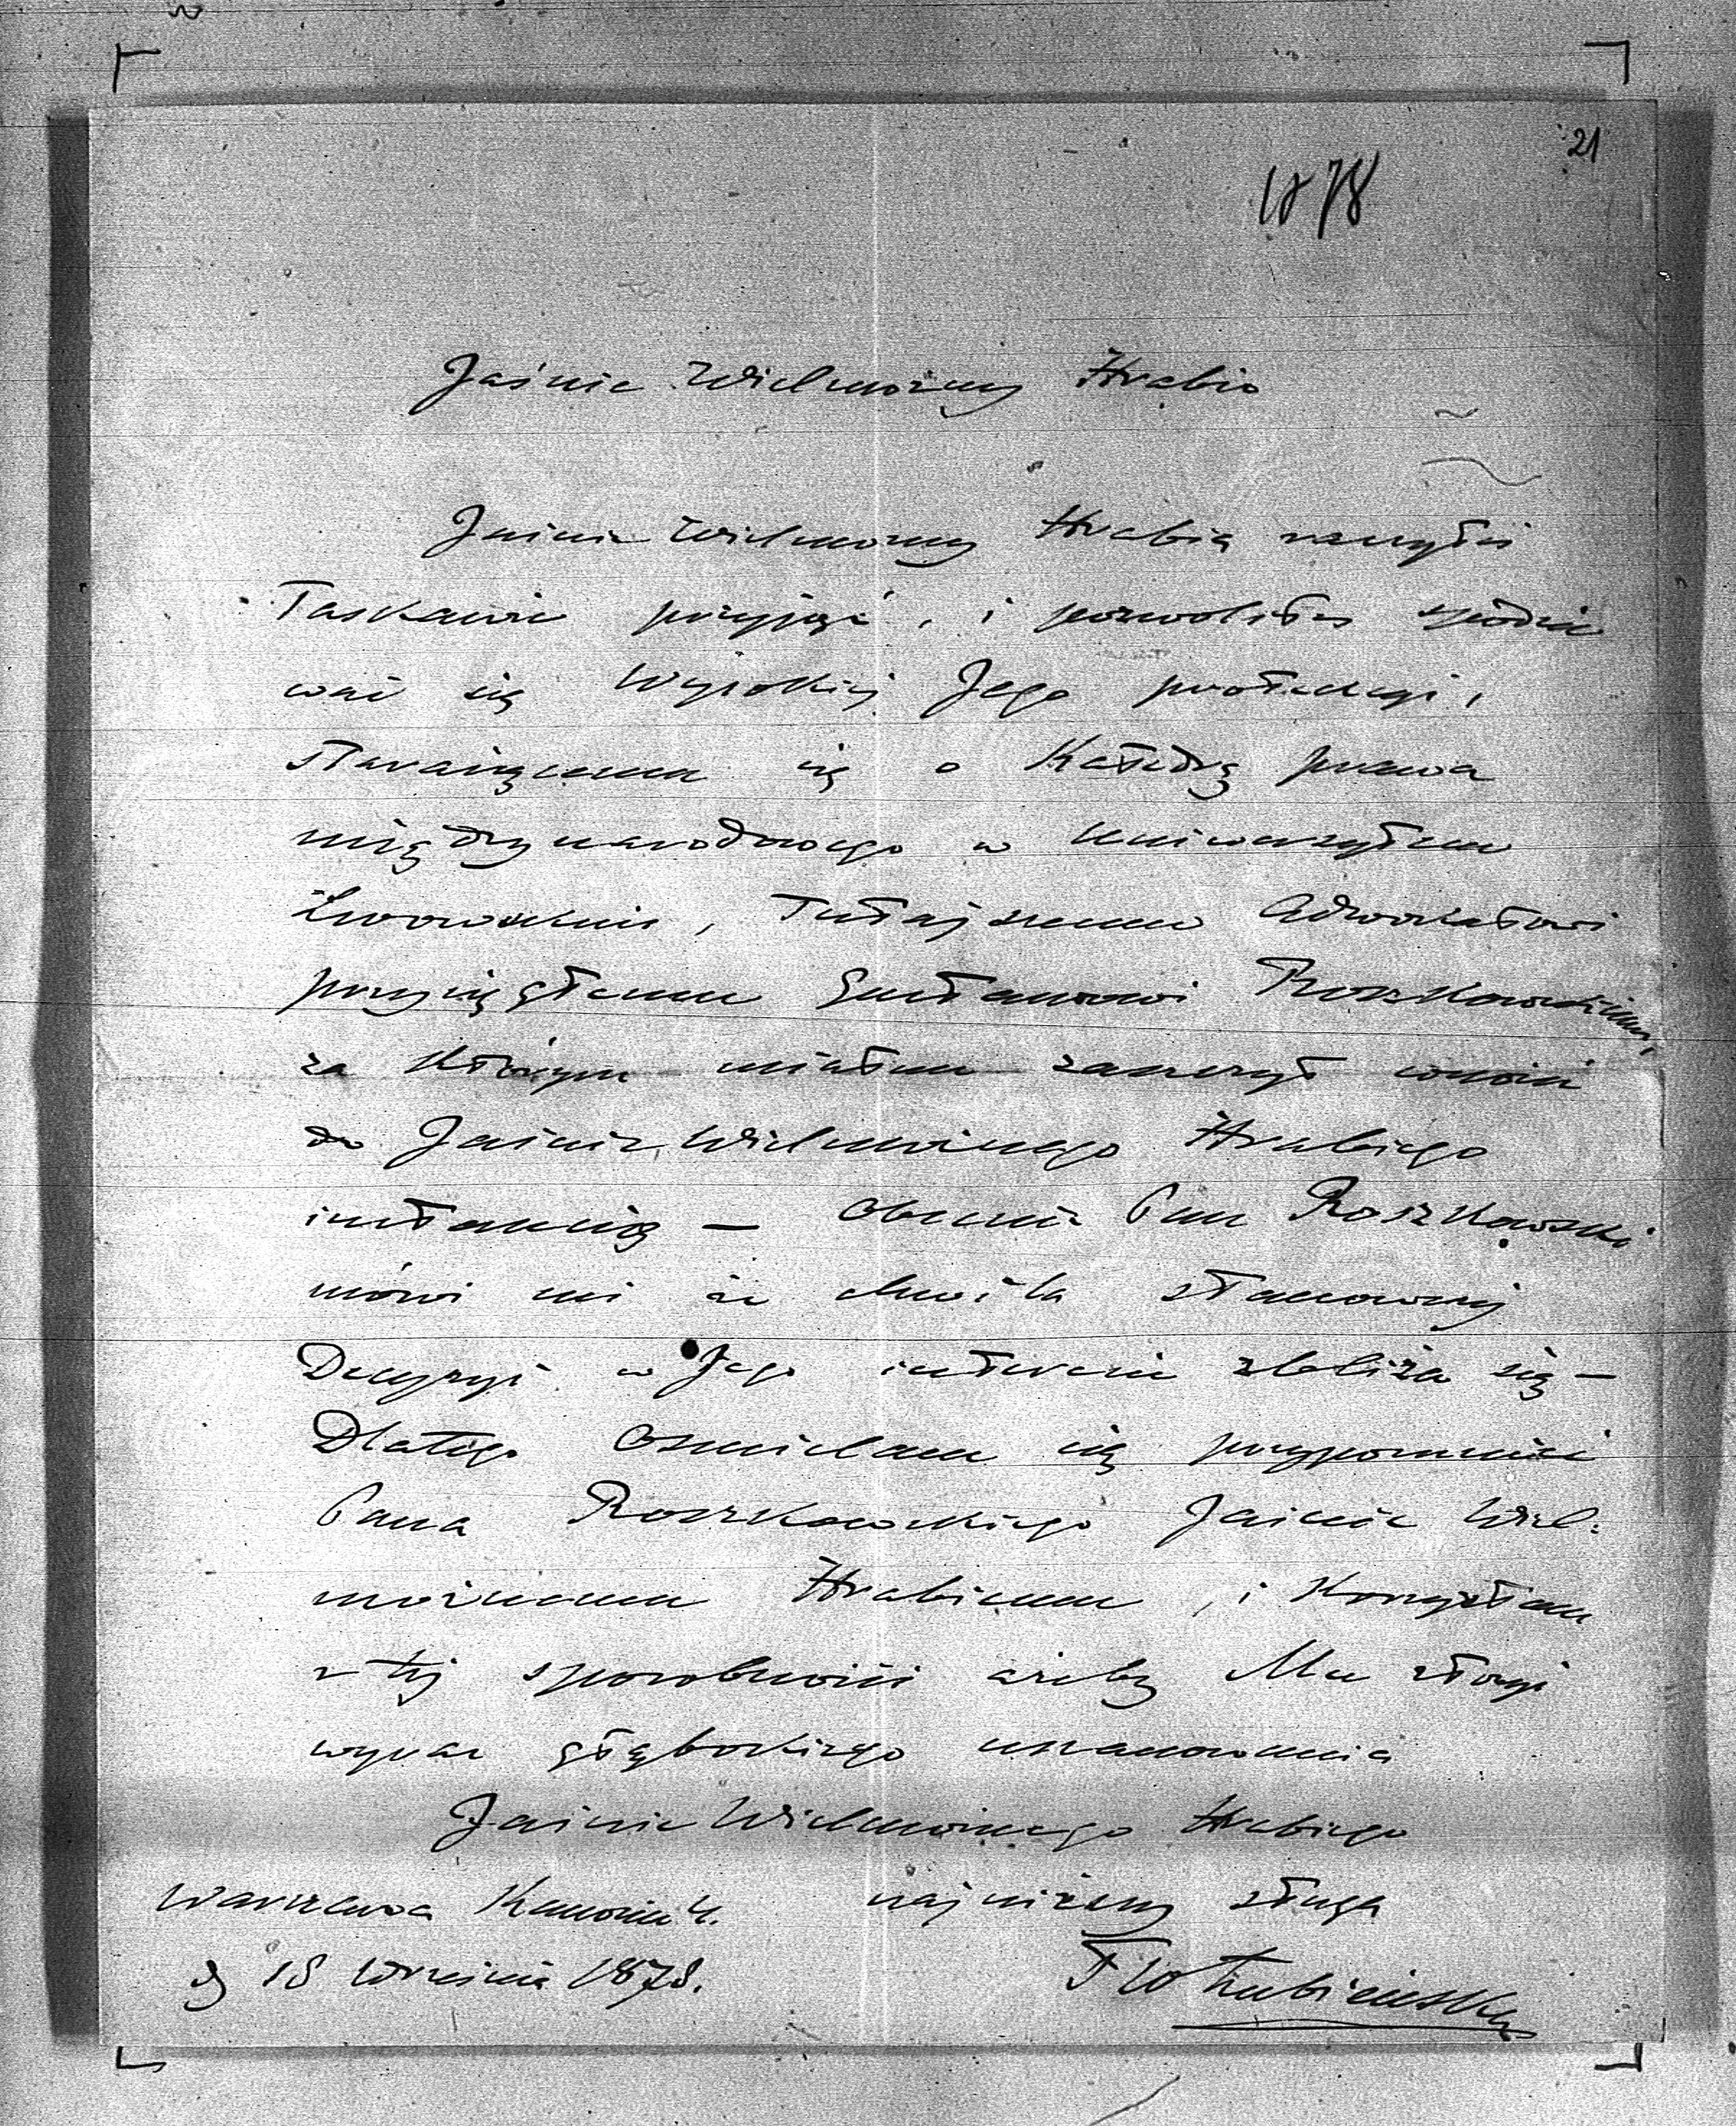 21
1878
Jaśnie Wielmożny Hrabio
Jaśnie Wielmożny Hrabia raczyłeś
Łaskawie przyjąć, i pozwoliłeś spodzie
wać się Wysokiej Jego protekcyi,
starającemu się o Katedrę prawa
międzynarodowego w Uniwersytecie
Lwowskim, Tutejszemu Adwokatowi
przysięgłemu Gustawowi Roszkowskiemu,
za którym miałem zaszczyt wnosić
do Jaśnie Wielmożnego Hrabiego
instancję — Obecnie Pan Roszkowski
mówi mi że chwila stanowczej
Decyzyi w Jego interesie zbliża się —
Dlatego Ośmielam się przypomnieć
Pana Roszkowskiego Jaśnie Wiel:
możnemu Hrabiemu, i Korzystam
z tej sposobności ażeby Mu złożyć
wyraz głębokiego uszanowania
Jaśnie Wielmożnego Hrabiego
najniższy sługa
Warszawa Kanonia 4.
d 18 Września 1878.
F Wo Łubieński